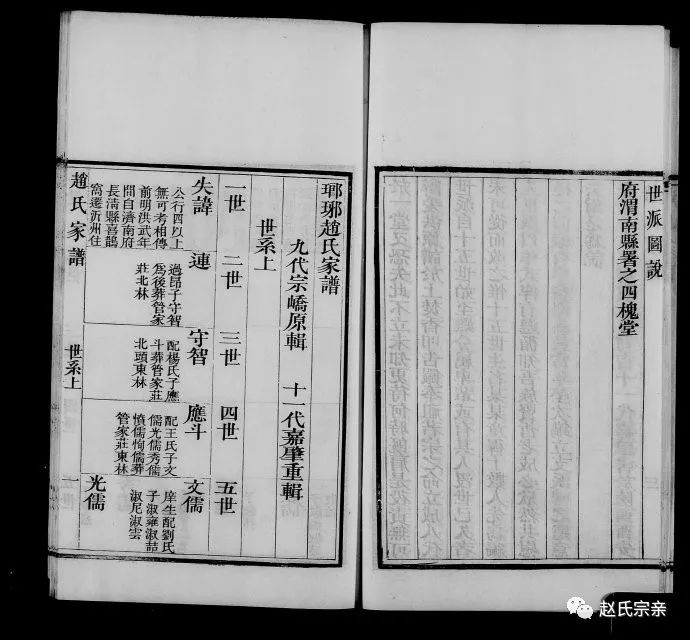 世派圖説
府渭南縣署之四槐堂
瑯琊趙氏家譜
九代宗嶠原輯 十一代嘉肇重輯
世系上
一世 二世 三世 四世 五世
失諱
公行四以上
無可考相傳
前明洪武年
間自濟南府
長清縣喜鵲
窩遷沂州住
連
過昂子守智
爲後葬管家
莊北林
守智
配楊氏子應
斗葬管家莊
北頭東林
應斗
配王氏子文
儒光儒秀儒
慎儒恂儒葬
管家莊東林
文儒
庠生配劉氏
子淑雍淑喆
淑尼淑雲
光儒
趙氏家譜
世系上
一
赵氏宗亲